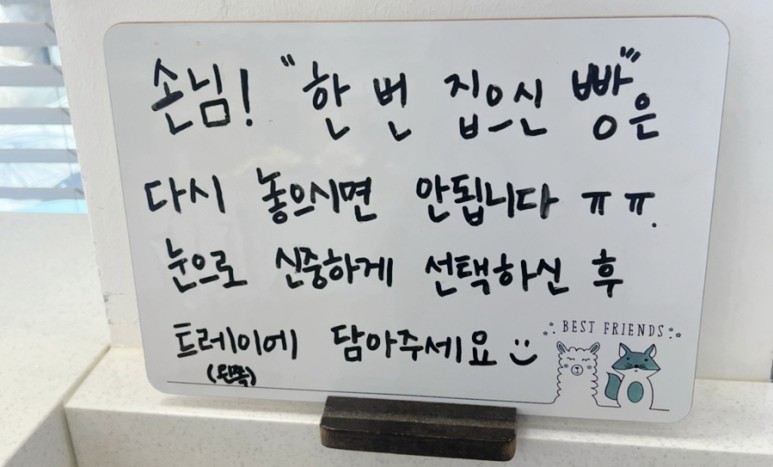 손님! "한 번 집으신 빵"은
다시 놓으시면 안됩니다 ㅠㅠ.
눈으로 신중하게 선택하신 후
트레이에 담아주세요
(왼쪽)
BEST FRIENDS